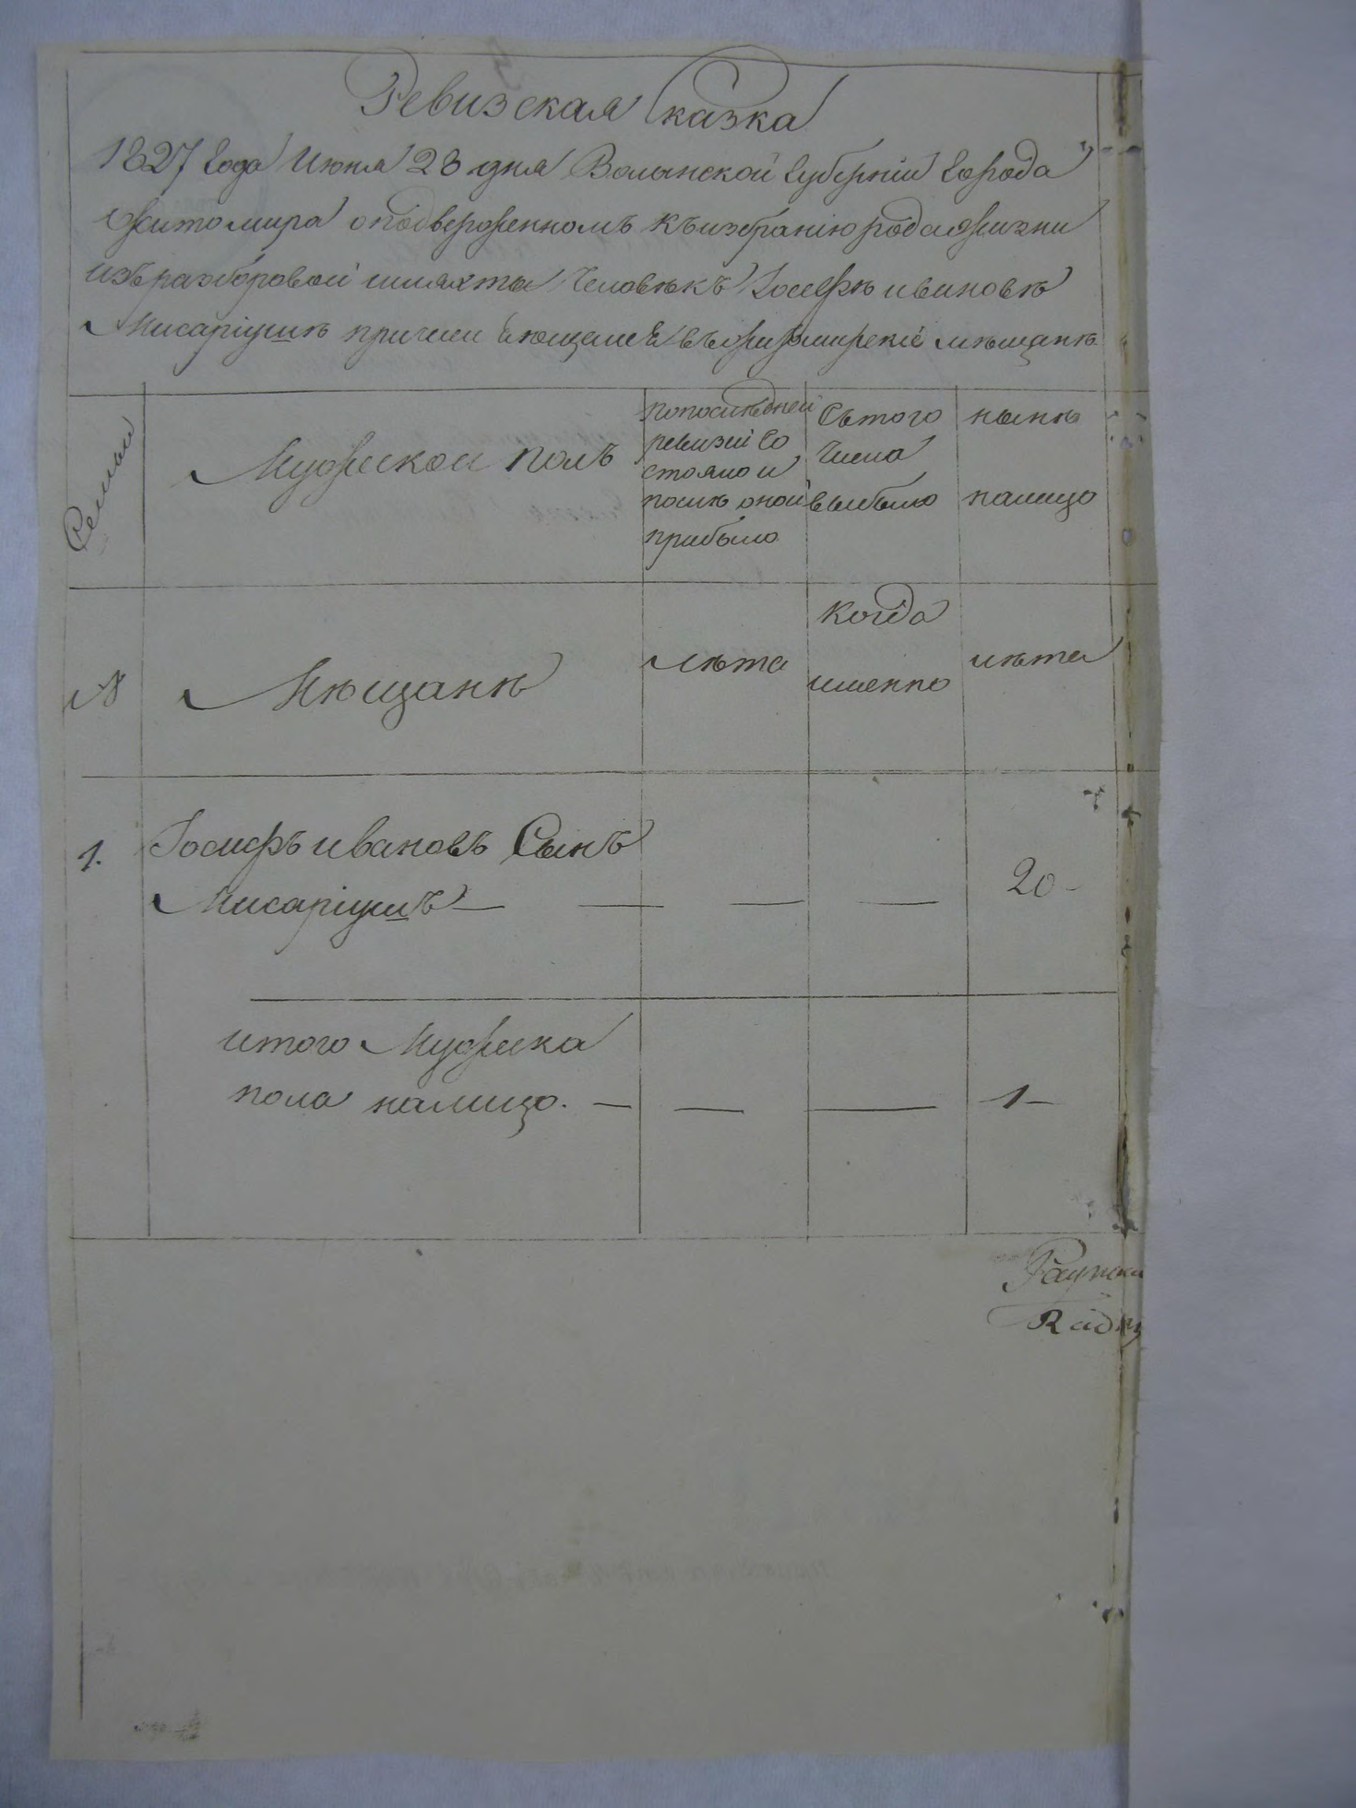 Ревизская Сказка
1827 года Июня 28 дня Волынской Губерніи Города
Житомира о подверженномъ къ избранію рода жизни
изъ разборовой шляхты Человѣкѣ Іосефѣ Ивановѣ
причисляющемся въ житомирскіе мѣщанѣ
Семьи
Мужескои полъ
попослѣдней
ревизіи со
стояло и
послѣ оной
прибыло
Съ того
числа
выбыло
нынѣ
налицо
№
Мѣщанѣ
лѣта
когда
именно
лѣта
1. Іосифъ ивановъ Сынъ
— — — 20 -
итого Мужеска
пола налицо. — — — 1 —